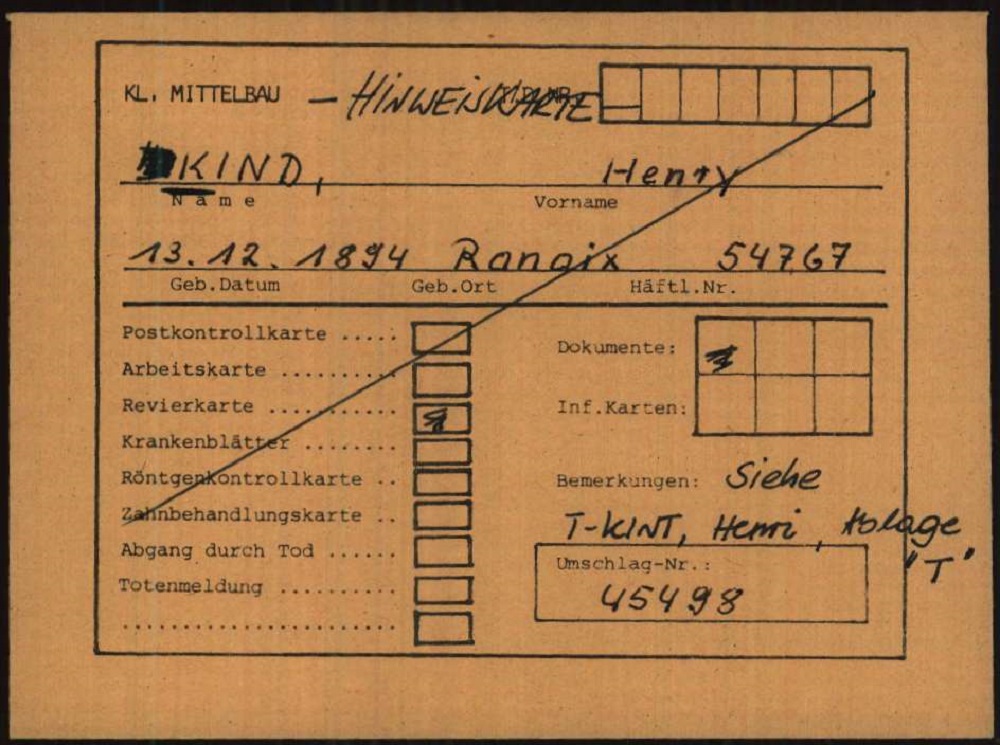 KL. MITTELBAU – HINWEISKARTE
KIND, Henry
Name Vorname
13.12.1894 Rongix 54767
Geb.Datum Geb.Ort Häftl.Nr.
Postkontrollkarte .....
Arbeitskarte ..........
Revierkarte ...........
Krankenblätter ........
Röntgenkontrollkarte ..
Zahnbehandlungskarte ..
Abgang durch Tod ......
Totenmeldung ..........
.......................
Dokumente:
Inf.Karten:
Bemerkungen: Siehe
T-KINT, Henri, Ablage
"T"
Umschlag-Nr.:
45498